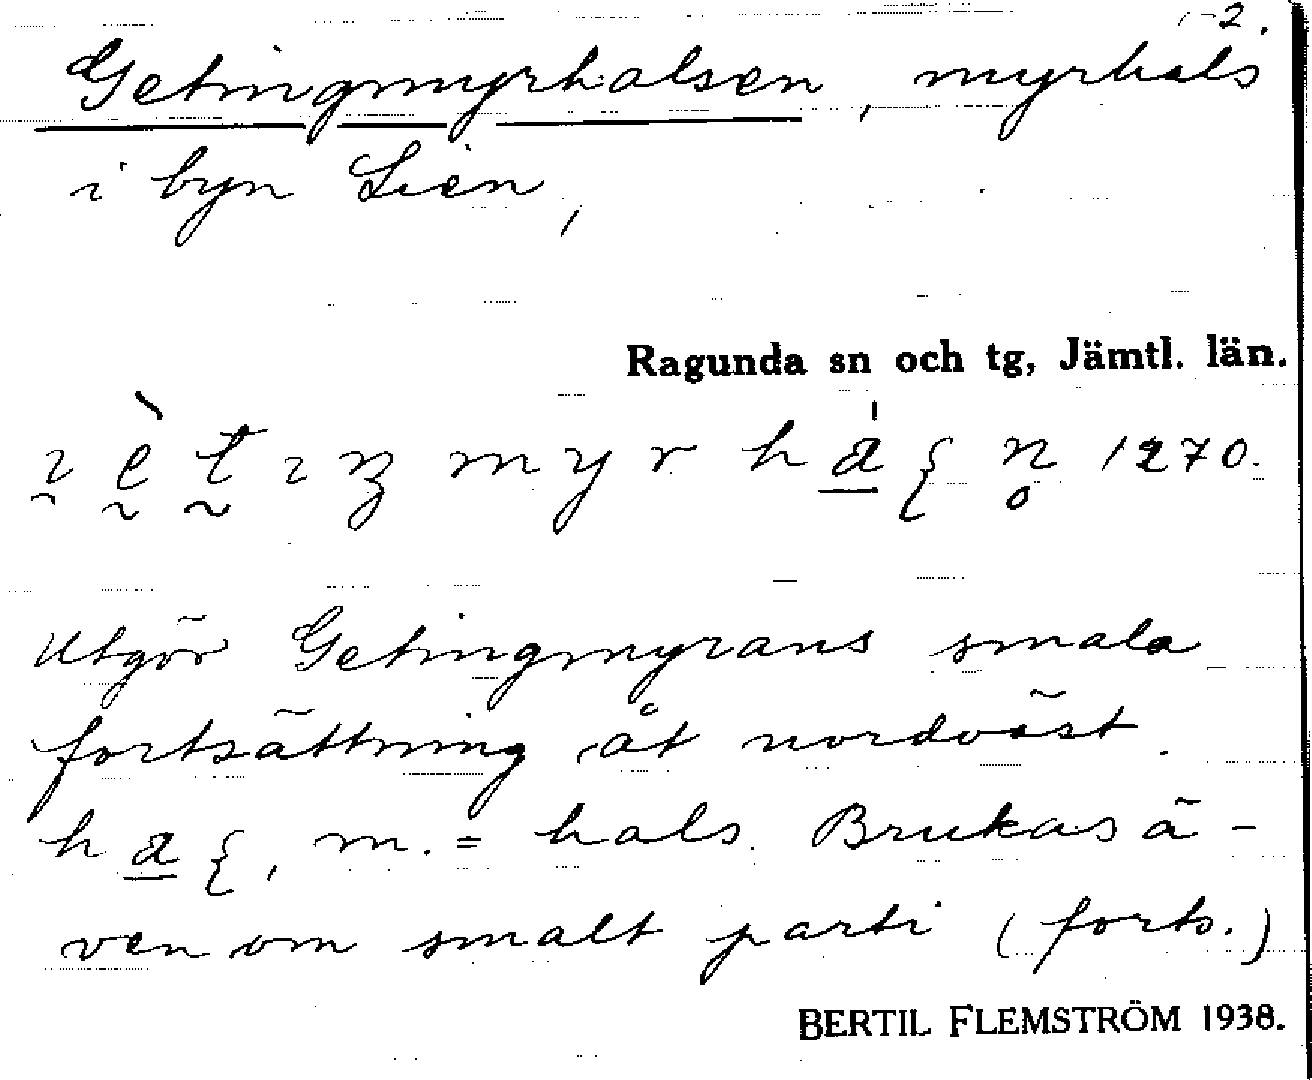 2.
Getingmyrhalsen, myrhals
i byn Lien,
Ragunda sn och tg, Jämtl. län.
1270.
Utgör Getingmyrans smala
fortsättning åt nordväst.
m. = hals. Brukas ä-
ven om smalt parti (forts.)
BERTIL FLEMSTRÖM 1938.